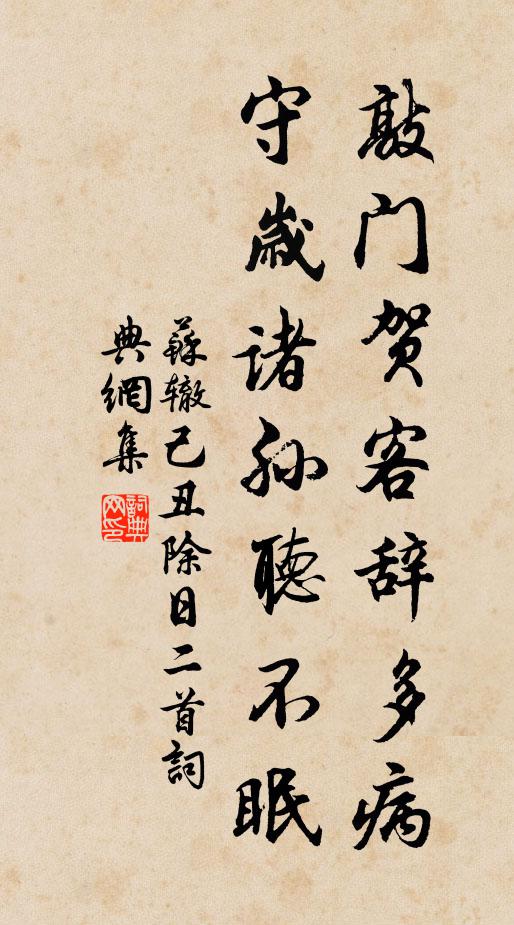 敲门贺客辞多病
守歳诸孙聴不眠
蘇辙己丑除日二首詞
典網集
詞典
网印